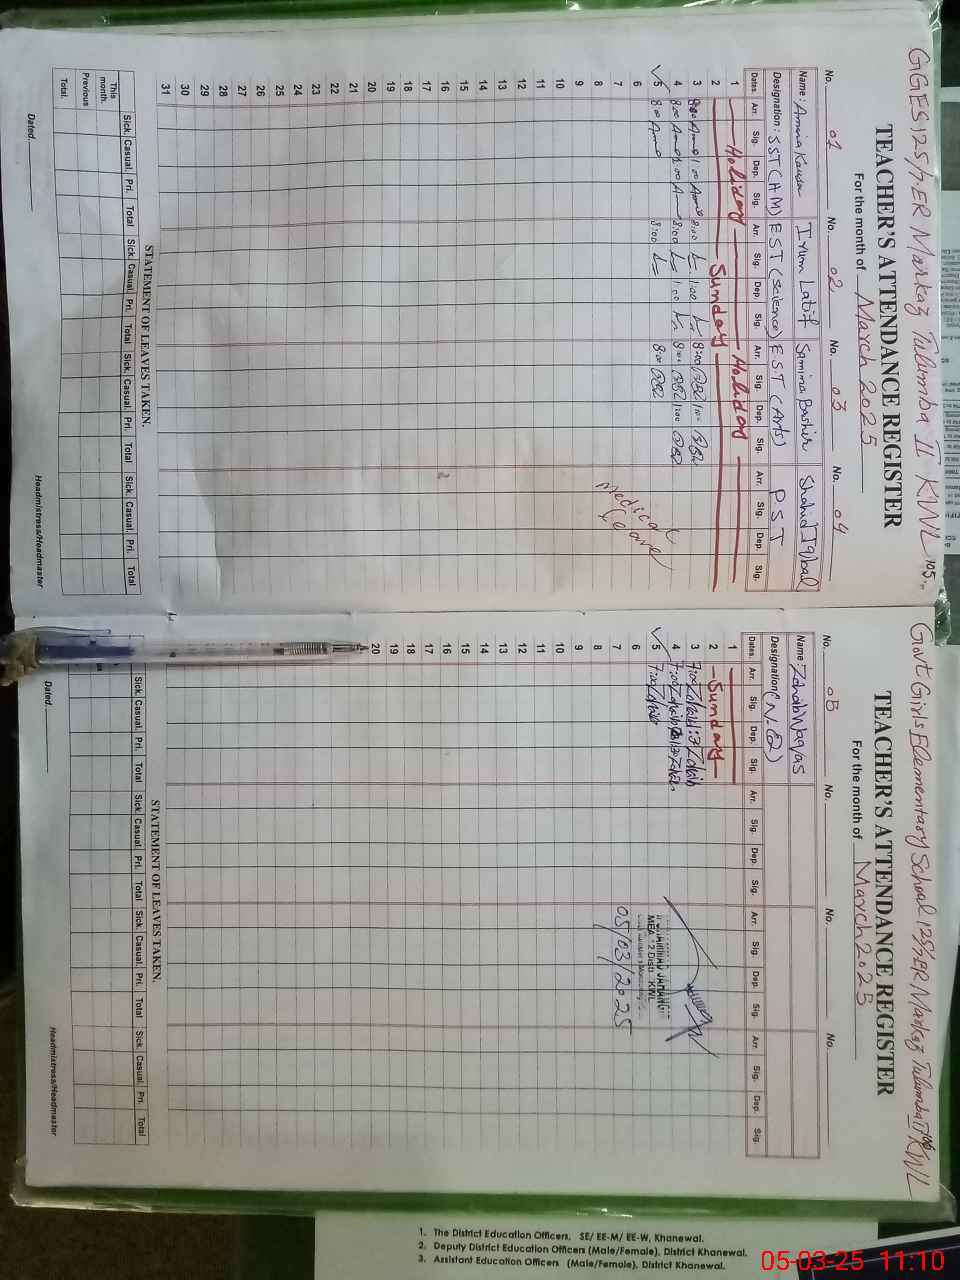 GGES 125/7.ER Markaz Talumba II KWL
105
TEACHER'S ATTENDANCE REGISTER
For the month of March 2025
No. 01 No. 02 No. 03 No. 04
Name: Amina Kausar Irum Latif Samina Bashir Shahid Iqbal
Designation: SST (HM) EST (Science) E.S.T (Arts) P S T
Dates Arr. Sig. Dep. Sig. Arr. Sig. Dep. Sig. Arr. Sig. Dep. Sig. Arr. Sig. Dep. Sig.
1 Holiday Holiday
2 Sunday
3 8:00 1:00 8:00 1:00 8:00 1:00
4 8:00 1:00 8:00 1:00 8:00 1:00
5 8:00 8:00 8:00
Medical
Leave
6
7
8
9
10
11
12
13
14
15
16
17
18
19
20
21
22
23
24
25
26
27
28
29
30
31
STATEMENT OF LEAVES TAKEN.
Sick. Casual. Pri. Total Sick. Casual. Pri. Total Sick. Casual. Pri. Total Sick. Casual. Pri. Total
This month.
Previous
Total.
Dated. Headmistress/Headmaster
Govt Girls Elementary School 125/7.ER Markaz Talumba II KWL
106
TEACHER'S ATTENDANCE REGISTER
For the month of March 2025
No. 03 No. No. No.
Name: Zohaib Waqas
Designation (N.Q)
Dates Arr. Sig. Dep. Sig. Arr. Sig. Dep. Sig. Arr. Sig. Dep. Sig. Arr. Sig. Dep. Sig.
1
2 Sunday
3 7:00 Zohaib 1:30 Zohaib
4 7:00 Zohaib 1:30 Zohaib
5 7:00 Zohaib
MEA 12 Distt KWL
05/03/2025
6
7
8
9
10
11
12
13
14
15
16
17
18
19
20
STATEMENT OF LEAVES TAKEN.
Sick. Casual. Pri. Total Sick. Casual. Pri. Total Sick. Casual. Pri. Total Sick. Casual. Pri. Total
Dated. Headmistress/Headmaster
1. The District Education Officers, SE/ EE-M/ EE-W, Khanewal.
2. Deputy District Education Officers (Male/Female), District Khanewal.
3. Assistant Education Officers (Male/Female), District Khanewal.
05-03-25 11:10